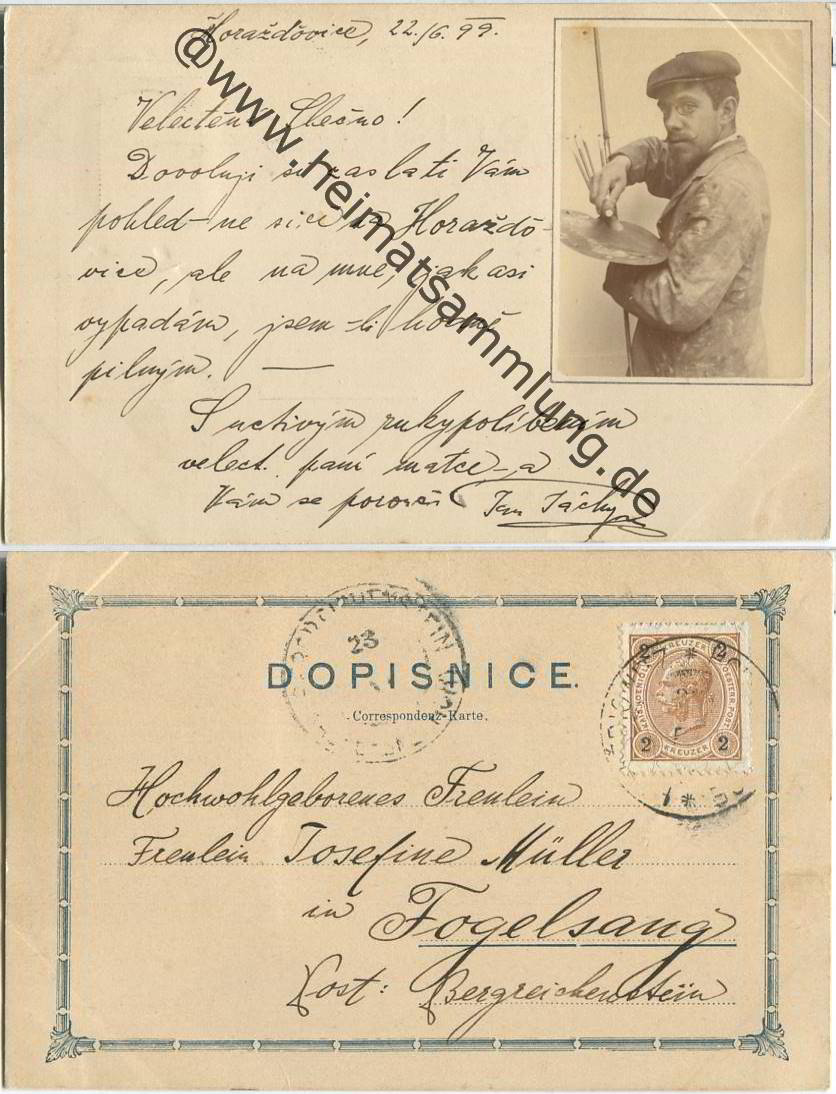 Horažďovice, 22./6. 99.
Velectěná Slečno!
Dovoluji si zaslati Vám
pohled – ne sice na Horaždo-
vice, ale na mne, jak asi
vypadám, jsem-li hodně
pilným. —
S uctivým rukypolíbením
velect. paní matce – a
Vám se poroučí Jan
@www.heimatsammlung.de
DOPISNICE.
Correspondenz-Karte.
23
2 KREUZER 2
KAIS. KOENIGL. OESTERR. POST.
2 KREUZER 2
Hochwohlgeborenes Freulein
Freulein Josefine Müller
in Fogelsang
Post: Bergreichenstein